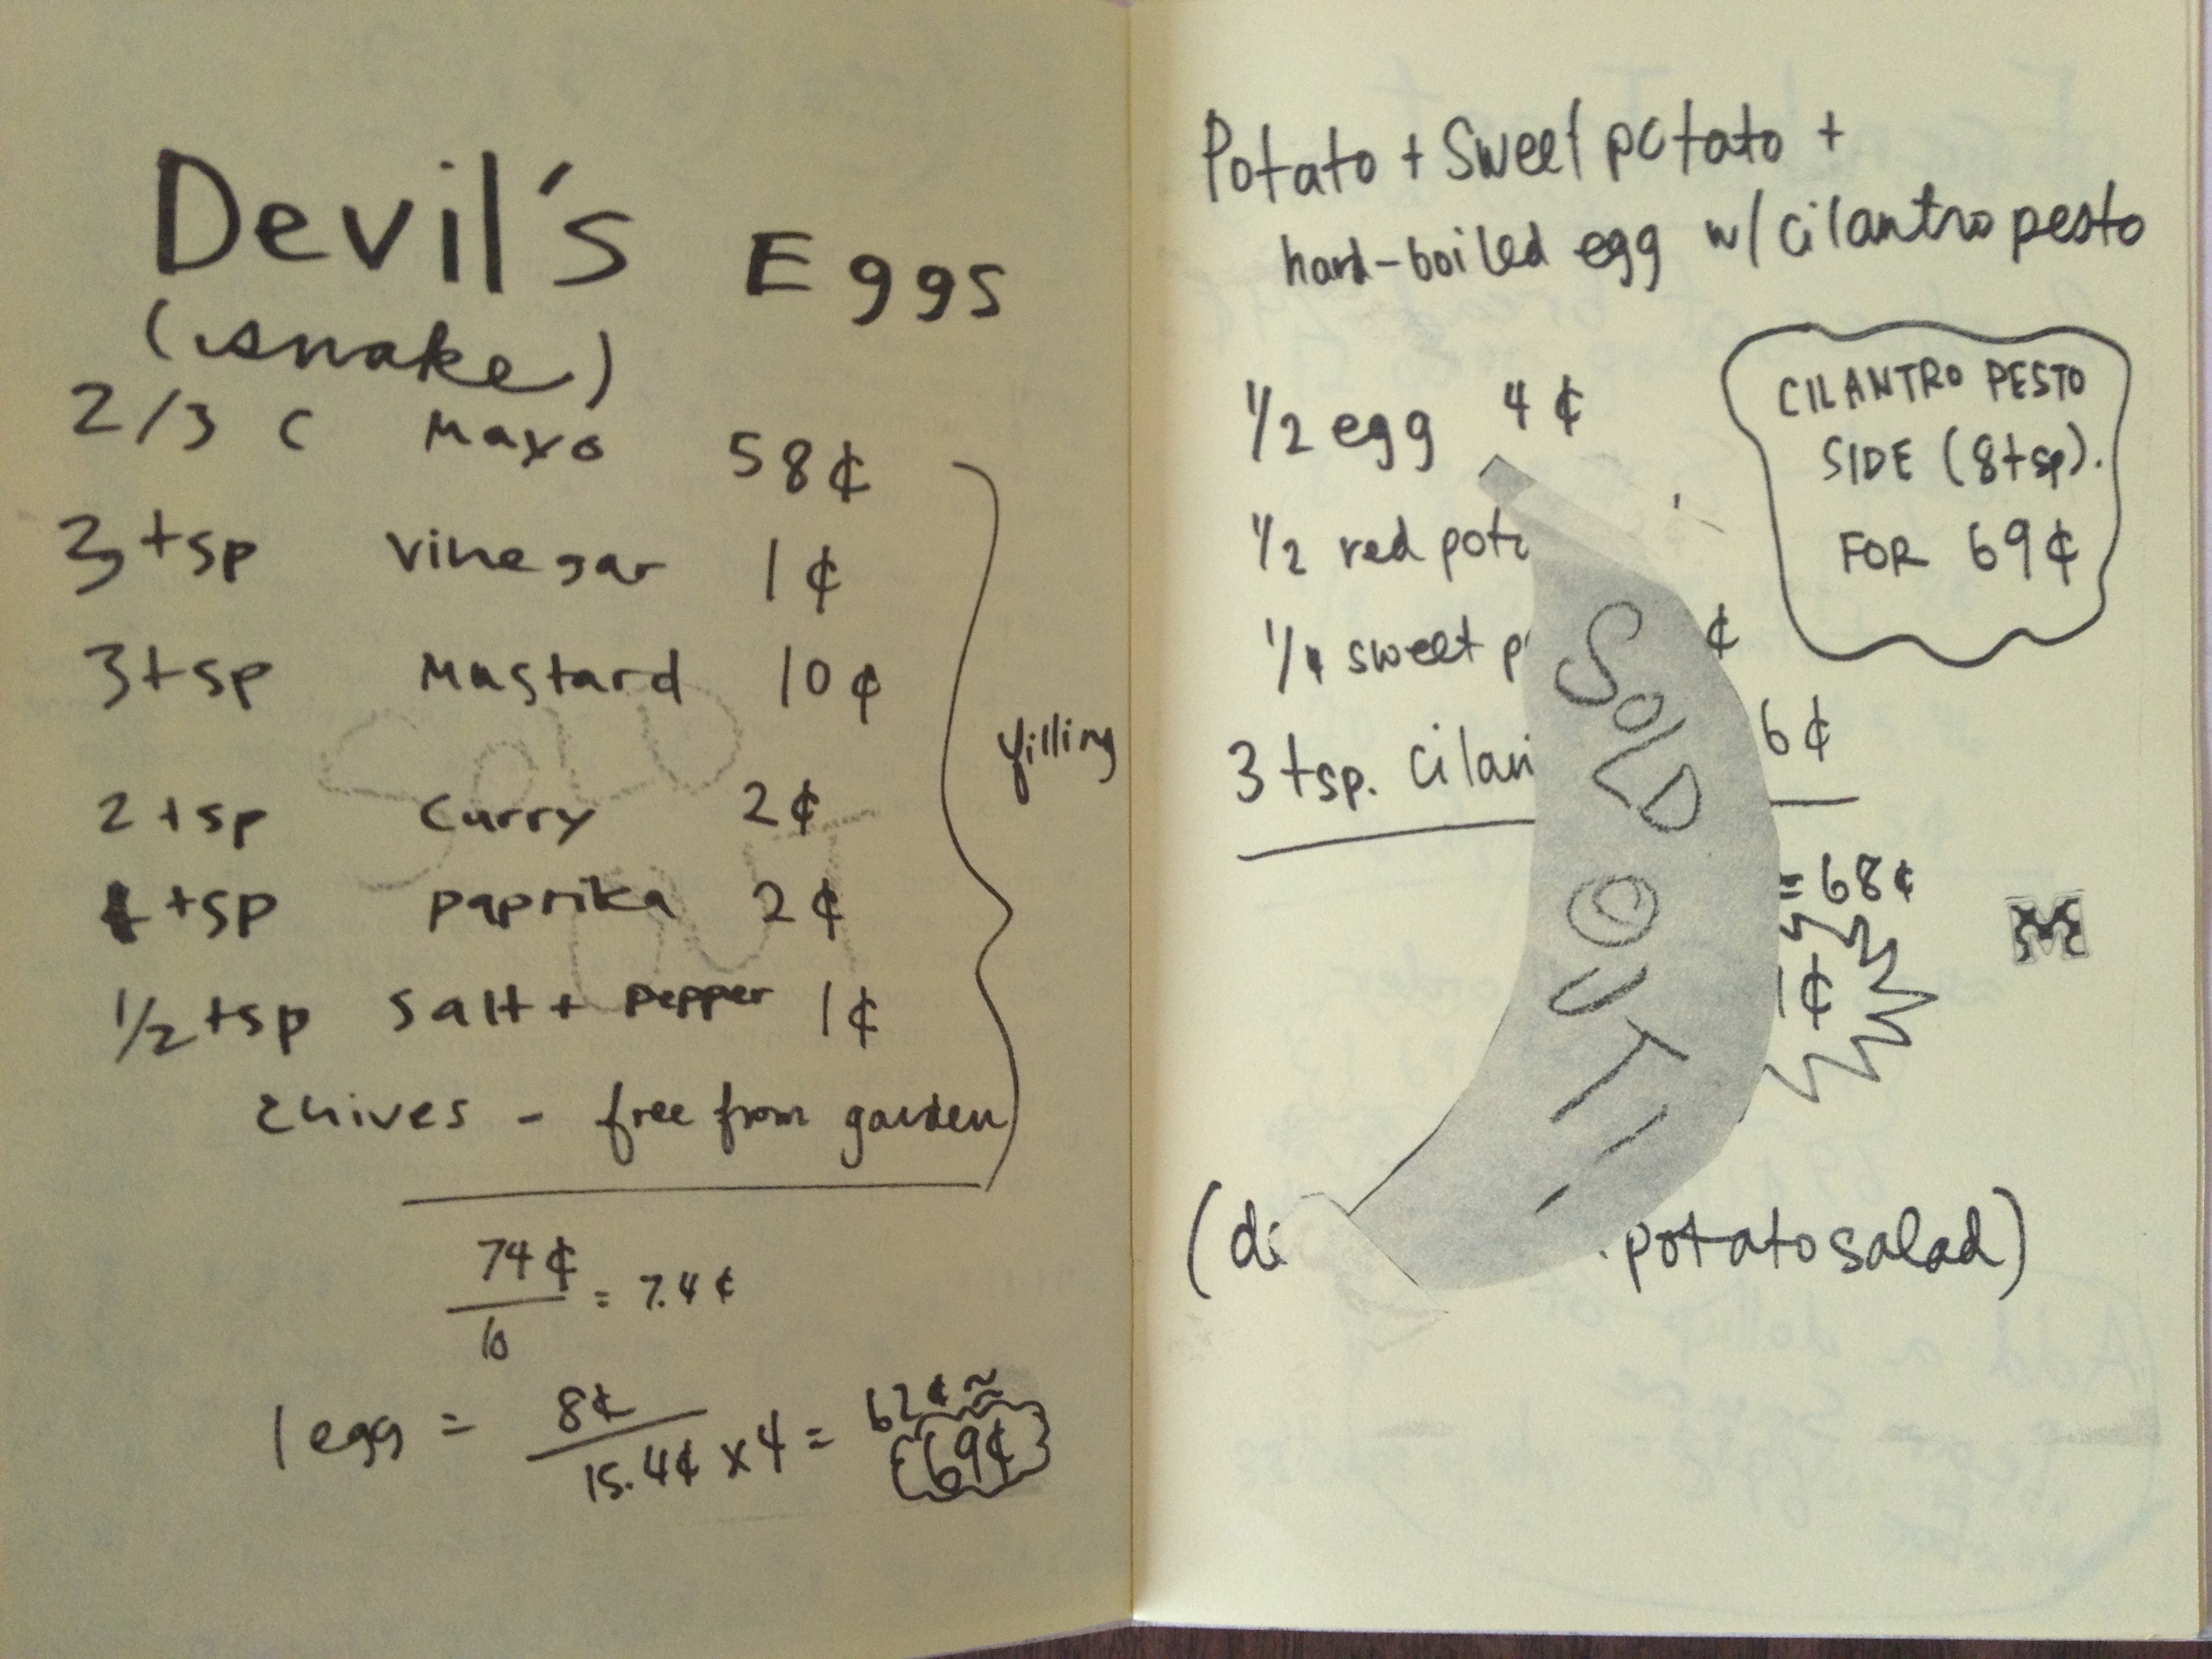 Devil's Eggs
(snake)
2/3 C Mayo 58¢
3 tsp vinegar 1¢
3 tsp Mustard 10¢
2 tsp Curry 2¢
tsp paprika 2¢
1/2 tsp salt + pepper 1¢
chives - free from garden
filling
SOLD
OUT
74¢
10
= 7.4¢
1 egg = 8¢
15.4¢ x 4 = 62¢ ≈
69¢
Potato + Sweet potato +
hard-boiled egg w/ cilantro pesto
1/2 egg 4¢
1/2 red
1/4 sweet ¢
3 tsp. 6¢
= 68¢
1¢
potato salad)
CILANTRO PESTO
SIDE (8 tsp).
FOR 69¢
SOLD
OUT!
M